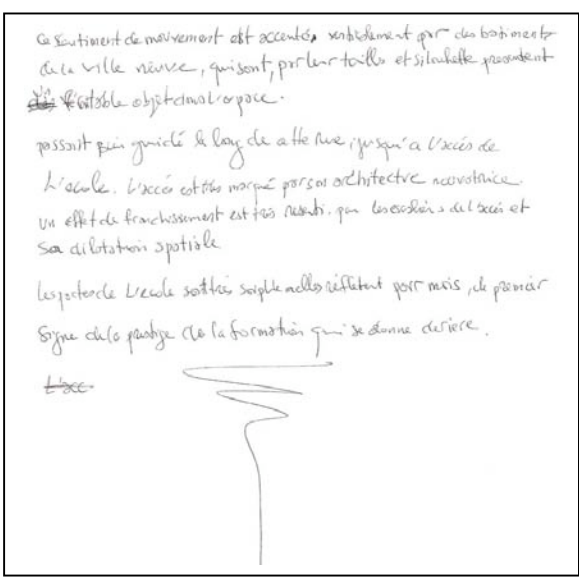 Ce sentiment de mouvement est accentué, verticalement par des batiments
de la ville neuve, qui sont, par leur taille et silouhette
objet dans l'espace.
passant puis guidé le long de cette rue, jusqu'a l'accés de
L'école. L'accés est très marqué par son architectre
un effet de franchissement est très resenti. par les escaliers de l'accés et
Sa dilatation spatiale
les portes de L'ecole sont très simple mais elles réflètent pour mois, le premier
Signe de la prestige de la formation qui se donne deriere.
L'acc.